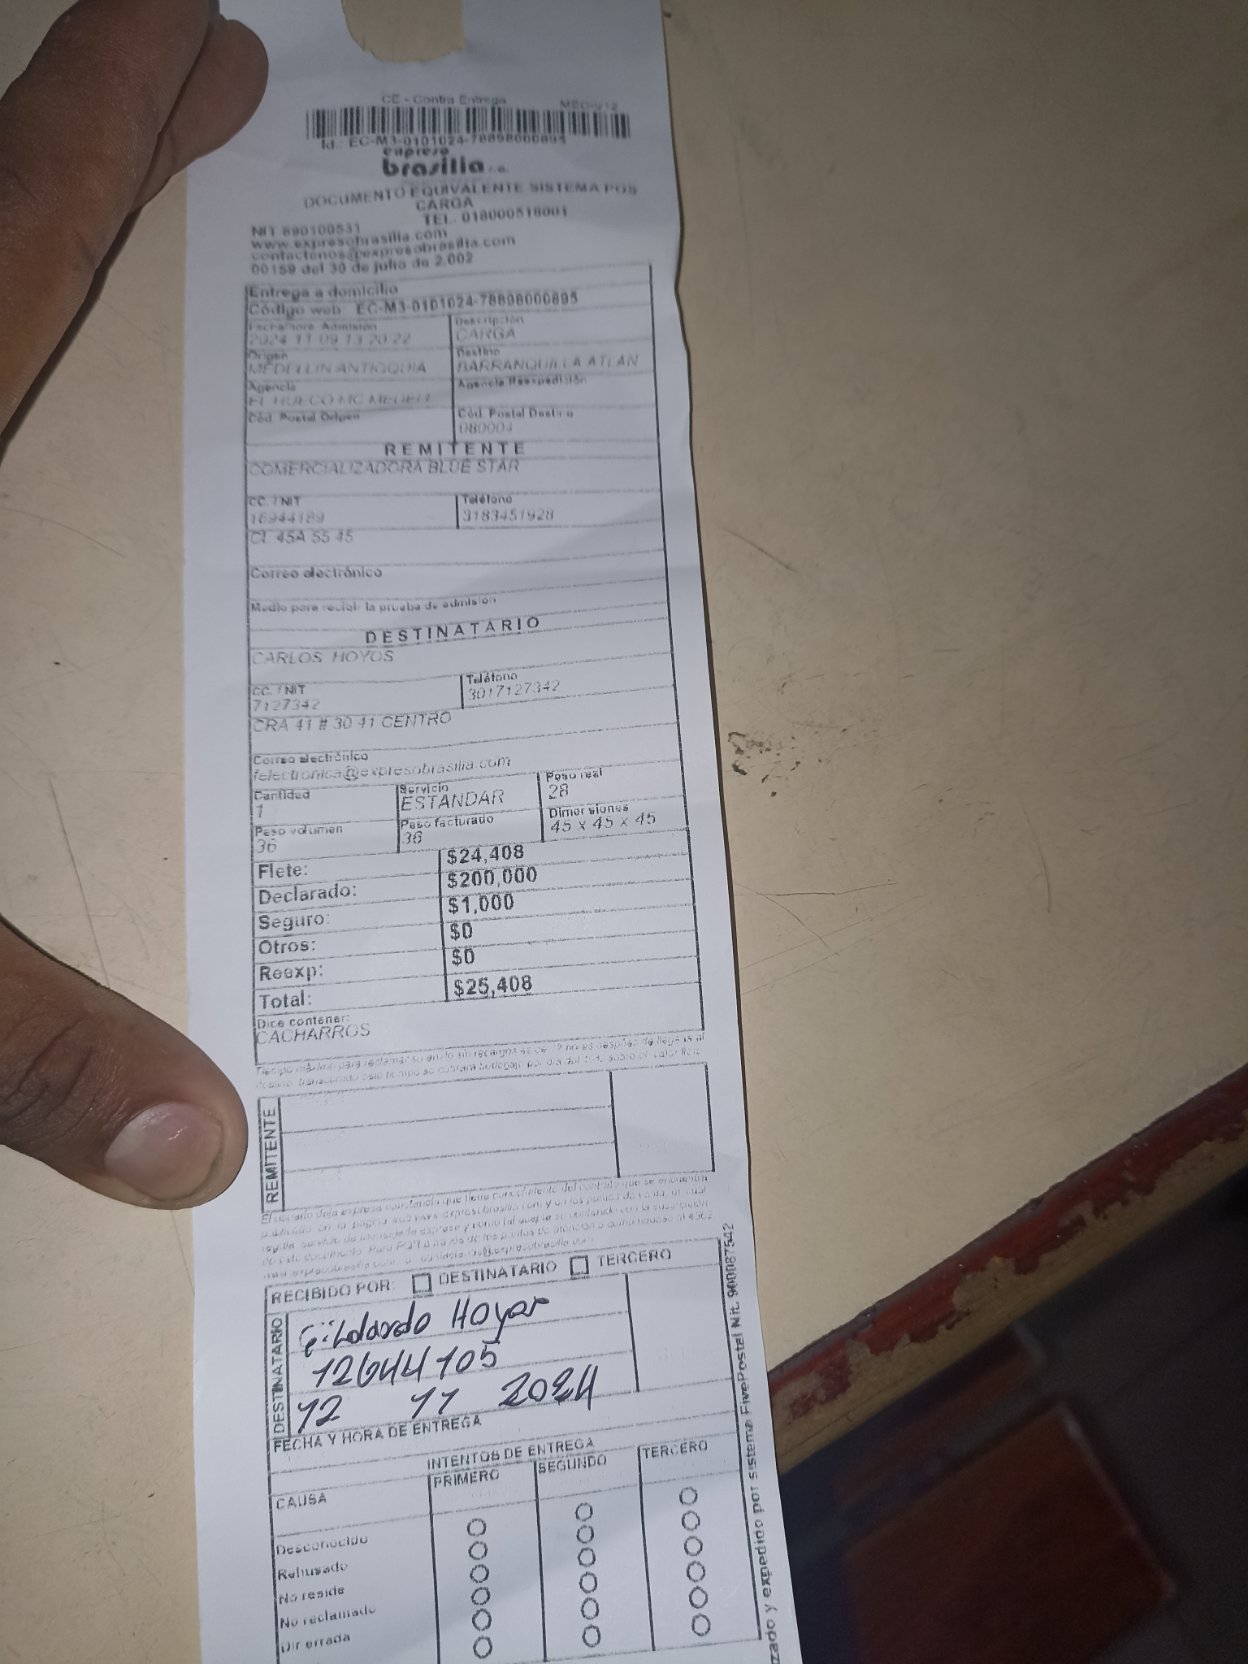 CE - Contra Entrega MEC-V12
Id.: EC-M3-0101024-78898000895
expreso
brasilia s.a.
DOCUMENTO EQUIVALENTE SISTEMA POS
CARGA
TEL. 018000518001
NIT 890100531
www.expresobrasilia.com
contactenos@expresobrasilia.com
00159 del 30 de julio de 2.002
Entrega a domicilio
Código web: EC-M3-0101024-78898000895
Fecha/hora Admisión Descripción
2024-11-09 13:20:22 CARGA
Origen Destino
MEDELLIN ANTIOQUIA BARRANQUILLA ATLAN
Agencia Agencia Reexpedición
EL HUECO MC MEDELL
Cód. Postal Origen Cód. Postal Destino
080004
REMITENTE
COMERCIALIZADORA BLUE STAR
CC. / NIT Teléfono
16944189 3183451928
CL 45A 55 45
Correo electrónico
Medio para recibir la prueba de admisión
DESTINATARIO
CARLOS HOYOS
CC. / NIT Teléfono
7127342 3017127342
CRA 41 # 30 41 CENTRO
Correo electrónico
felectronica@expresobrasilia.com
Cantidad Servicio Peso real
1 ESTANDAR 28
Peso volumen Peso facturado Dimensiones
36 36 45 x 45 x 45
Flete: $24,408
Declarado: $200,000
Seguro: $1,000
Otros: $0
Reexp: $0
Total: $25,408
Dice contener:
CACHARROS
REMITENTE
RECIBIDO POR: DESTINATARIO TERCERO
DESTINATARIO
Gildardo Hoyos
12644105
12 11 2024
FECHA Y HORA DE ENTREGA
INTENTOS DE ENTREGA
CAUSA PRIMERO SEGUNDO TERCERO
Desconocido
Rehusado
No reside
No reclamado
Dir errada
zado y expedido por sistema FivePostal Nit. 900087542